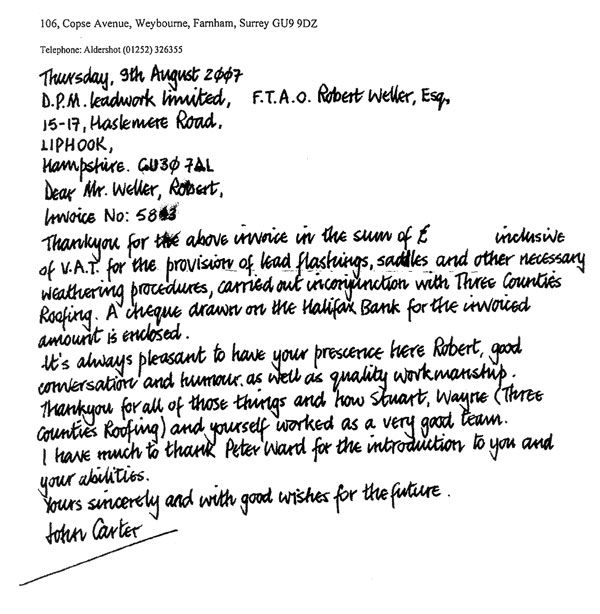 106, Copse Avenue, Weybourne, Farnham, Surrey GU9 9DZ
Telephone: Aldershot (01252) 326355
Thursday, 9th August 2007
D.P.M. leadwork limited, F.T.A.O. Robert Weller, Esq,
15-17, Haslemere Road,
LIPHOOK,
Hampshire. GU30 7AL
Dear Mr. Weller, Robert,
Invoice No:
Thankyou for the above invoice in the sum of £ inclusive
of V.A.T. for the provision of lead flashings, saddles and other necessary
weathering procedures, carried out inconjunction with Three Counties
Roofing. A cheque drawn on the Halifax Bank for the invoiced
amount is enclosed.
It's always pleasant to have your prescence here Robert, good
conversation and humour. as well as quality workmanship.
Thankyou for all of those things and how Stuart, Wayne (Three
Counties Roofing) and yourself worked as a very good team.
I have much to thank Peter Ward for the introduction to you and
your abilities.
Yours sincerely and with good wishes for the future.
John Carter